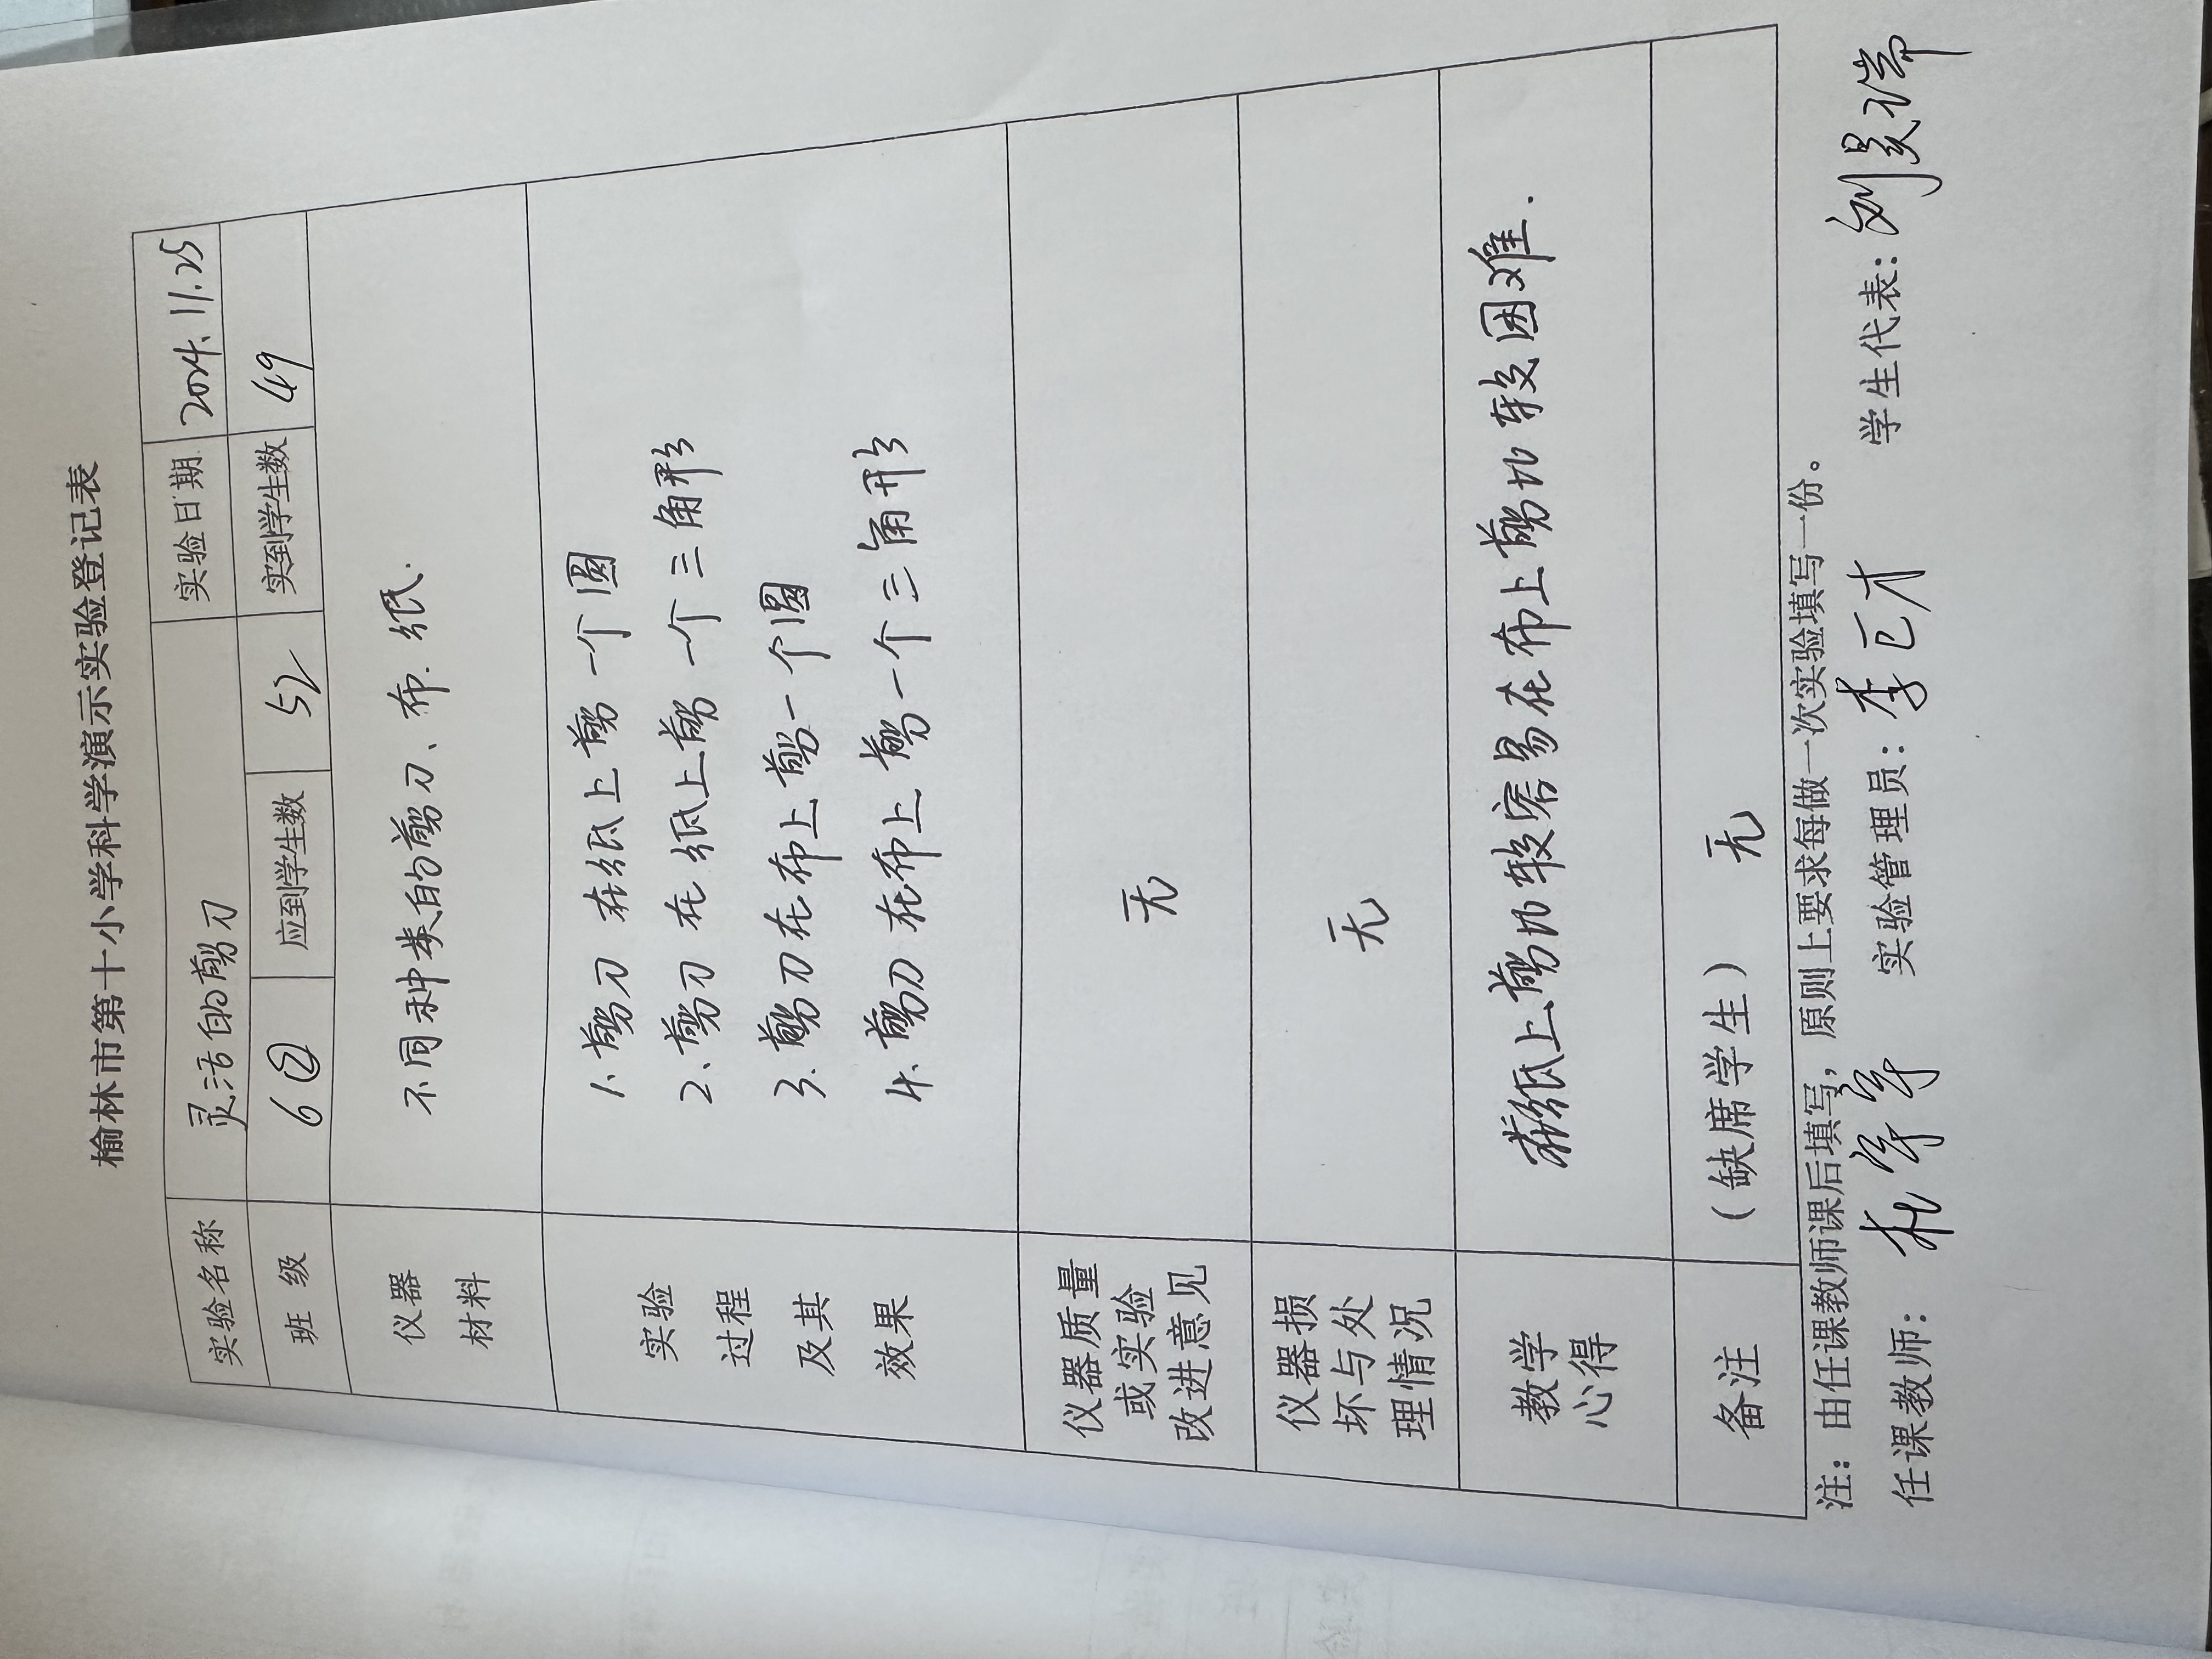 榆林市第十小学科学演示实验登记表
实验名称 灵活的剪刀 实验日期 2024.11.25
班 级 6② 应到学生数 52 实到学生数 49
仪器
材料
不同种类的剪刀、布.纸.
实验
过程
及其
效果
1.剪刀在纸上剪一个圆
2、剪刀在纸上剪一个三角形
3.剪刀在布上剪一个圆
4.剪刀在布上剪一个三角形
仪器质量
或实验
改进意见
无
仪器损
坏与处
理情况
无
教学
心得
在纸上剪比较容易在布上剪比较困难.
备注 (缺席学生) 无
注：由任课教师课后填写，原则上要求每做一次实验填写一份。
任课教师： 实验管理员：李 学生代表：刘